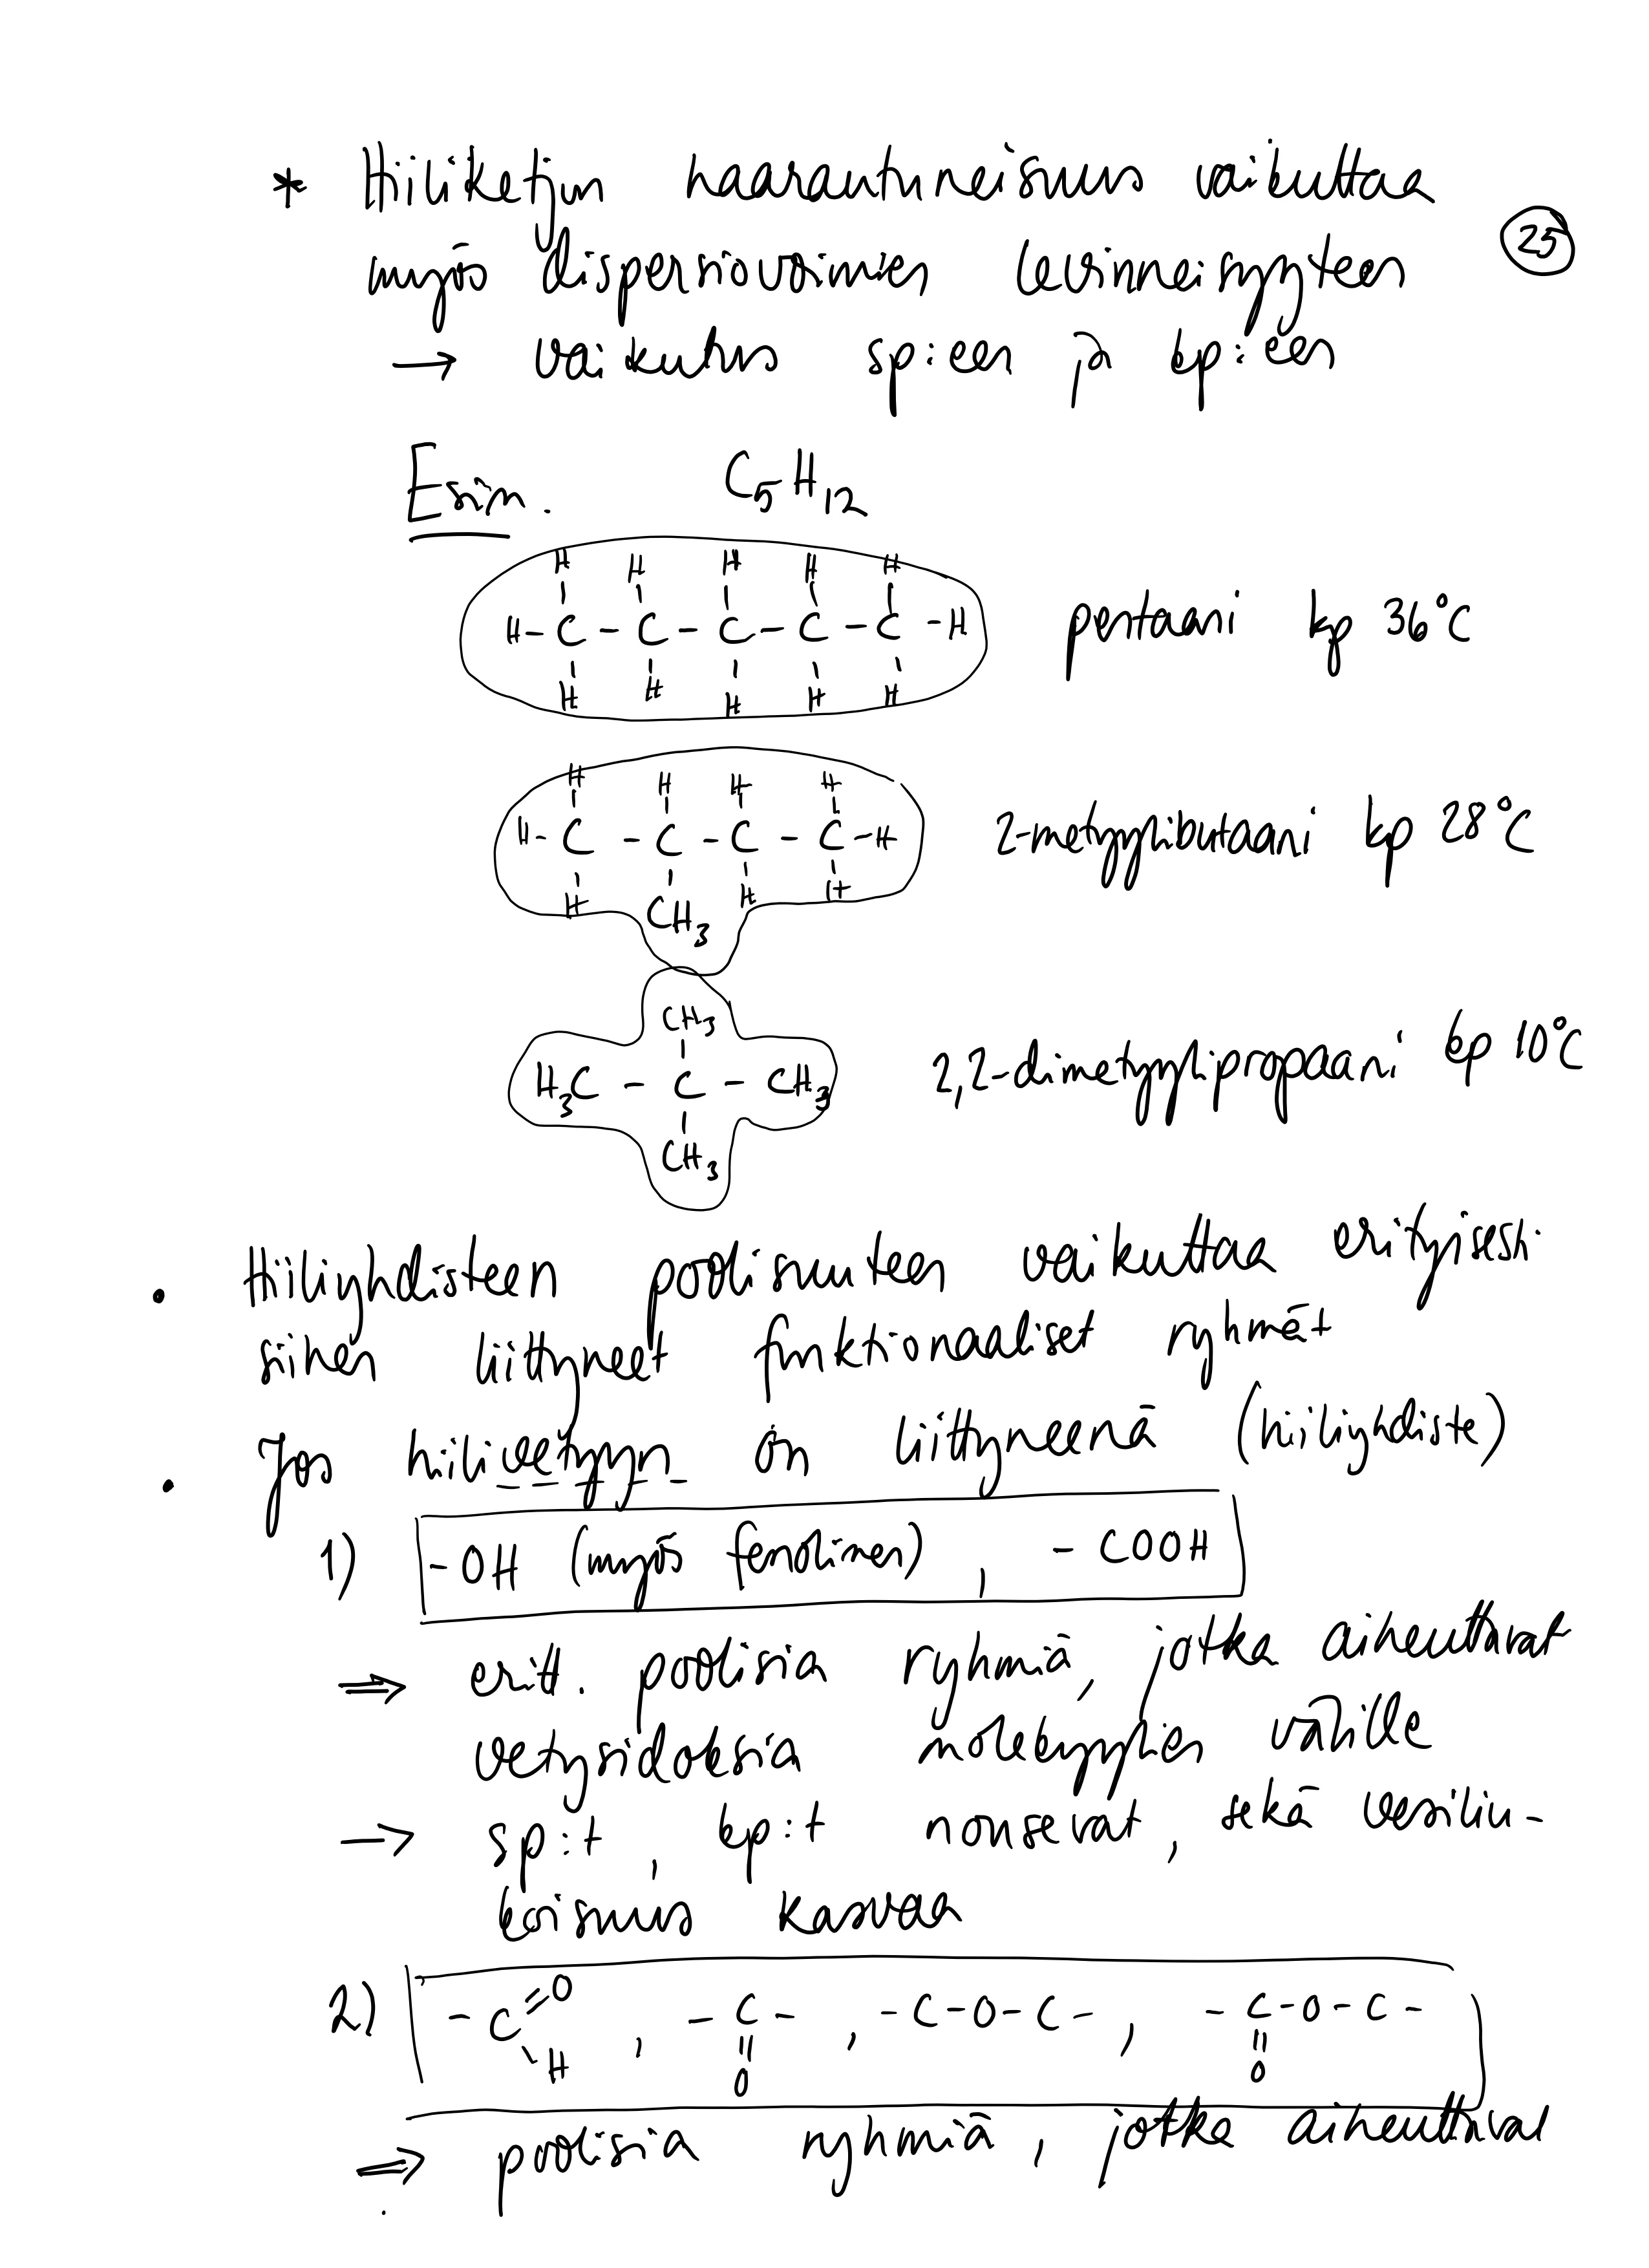 * Hiiliketjun haarautuneisuus vaikuttaa
25
myös dispersiovoimien levinneisyyteen
→ vaikutus sp:een ja kp:een
Esim. C5H12
H H H H H
H - C - C - C - C - C - H
H H H H H
pentaani kp 36°C
H H H H
H - C - C - C - C - H
H CH3 H H
2-metyylibutaani kp 28°C
CH3
H3C - C - CH3
CH3
2,2-dimetyylipropaani kp 10°C
• Hiiliyhdisteen poolisuuteen vaikuttaa erityisesti
siihen liittyneet funktionaaliset ryhmät
• Jos hiilivetyyn on liittyneenä (hiiliyhdiste)
1) -OH (myös fenolinen), -COOH
⇒ eritt. poolisia ryhmiä, jotka aiheuttavat
vetysidoksia molekyylien välille
→ sp:t, kp:t nousevat, sekä vesiliu-
koisuus kasvaa
2) - C =O H , - C - =O , - C - O - C - , - C - O - C - =O
⇒ poolisia ryhmiä, jotka aiheuttavat